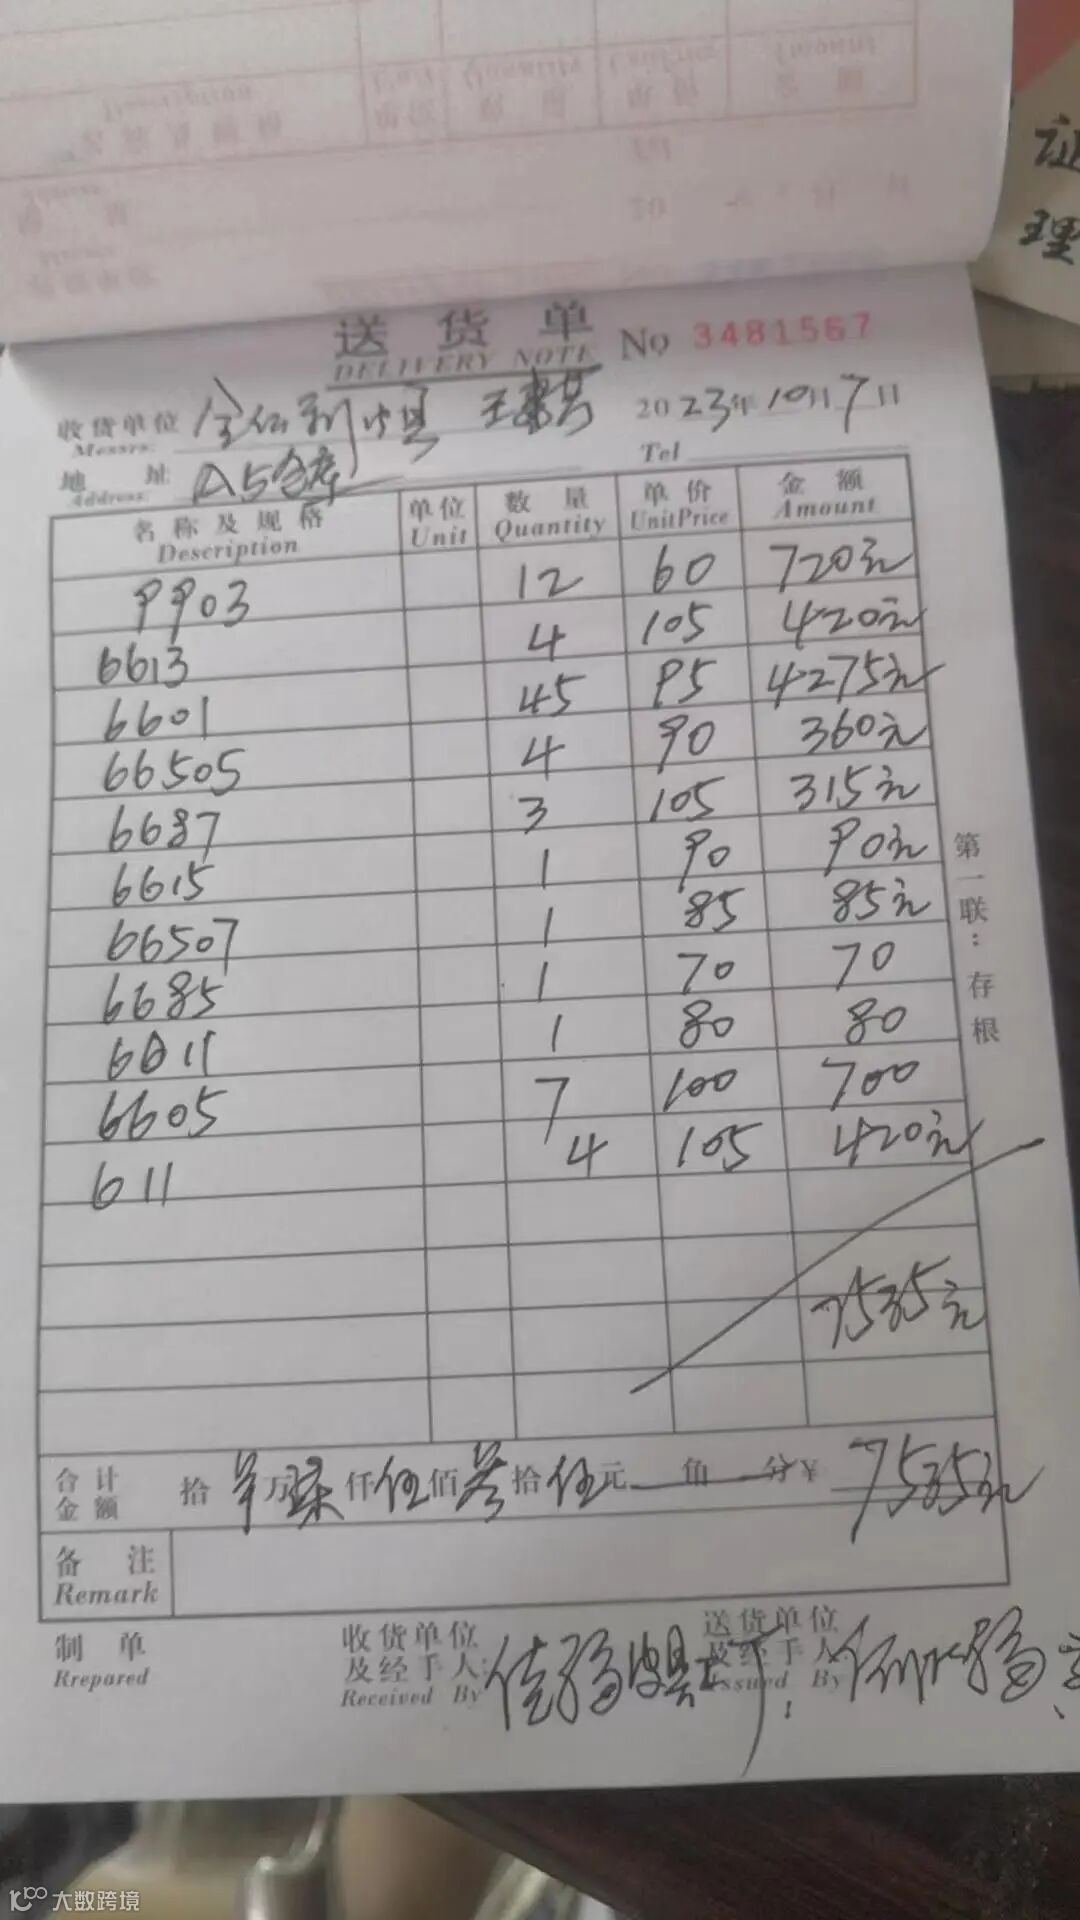 证
理
送货单 No 3481567
DELIVERY NOTE
收货单位 2023年10月7日
Messrs:
地址 A5仓库 Tel
Address:
名称及规格 单位 数量 单价 金额
Description Unit Quantity UnitPrice Amount
9903 12 60 720元
6613 4 105 420元
6601 45 95 4275元
66505 4 90 360元
6687 3 105 315元
6615 1 90 90元
66507 1 85 85元
6685 1 70 70
6011 1 80 80
6605 7 100 700
611 4 105 420元
7535元
第一联:存根
合计金额 拾 万柒仟伍佰叁拾伍元 角 分¥ 7535元
备注
Remark
制单 收货单位及经手人: 送货单位及经手人:
Rrepared Received By Issued By
大数跨境